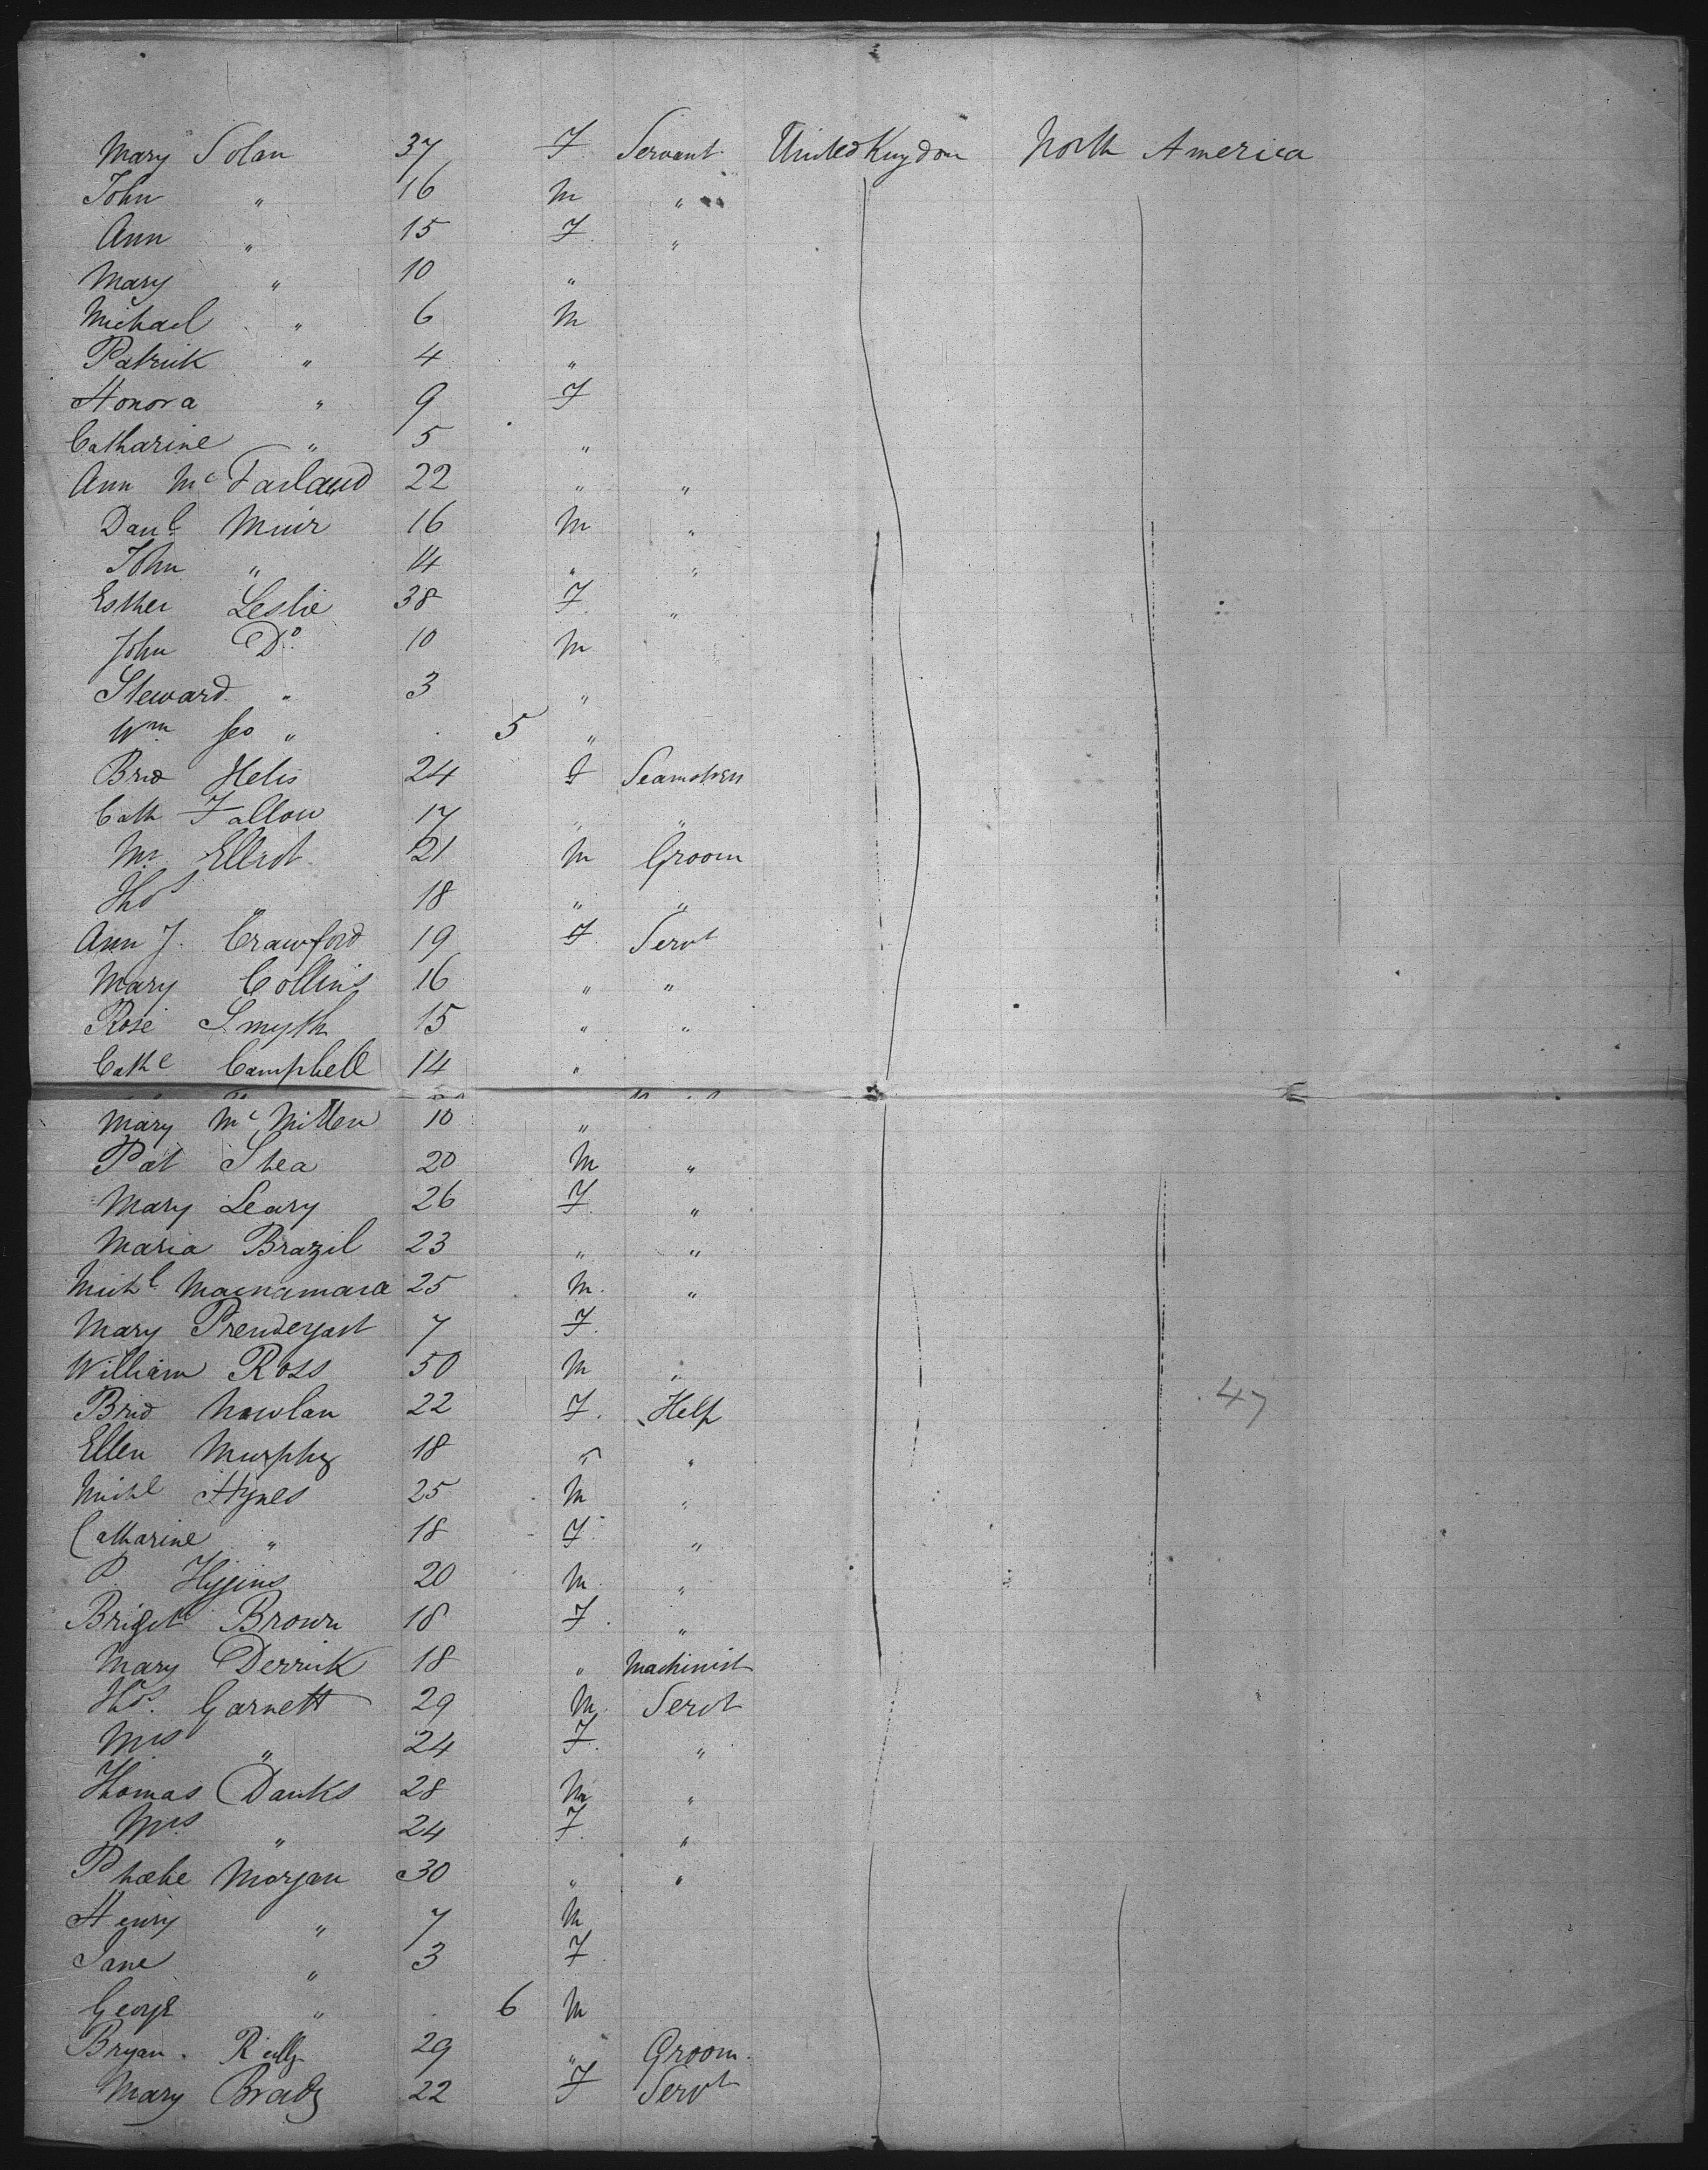 Mary Solan 37 F Servant United Kingdom North America
John " 16 M "
Ann " 15 F "
Mary " 10 "
Michael " 6 M
Patrick " 4 "
Honora " 9 F
Catharine " 5 "
Ann Mc Farland 22 " "
Danl Muir 16 M "
John " 14 " "
Esther Leslie 38 F "
John Do 10 M
Steward " 3 "
Wm Geo " 5 "
Brid Helis 24 F Seamstress
Cath Fallon 17 " "
Mr Elliot 21 M Groom
Thos " 18 " "
Ann J. Crawford 19 F Servt
Mary Collins 16 " "
Rose Smyth 15 " "
Cathe Campbell 14 "
Mary Mc 10 "
Pat Shea 20 M "
Mary Leary 26 F "
Maria Brazil 23 " "
Michl Macnamara 25 M "
Mary Prendergast 7 F
William Ross 50 M "
Brid Nowlan 22 F. Help 47
Ellen Murphy 18 " "
Michl Hynes 25 M "
Catharine " 18 F "
P. Higgins 20 M "
Briget Brown 18 F "
Mary Derrick 18 " Machinist
Thos. Garnett 29 M Servt
Mrs " 24 F "
Thomas Danks 28 M "
Mrs " 24 F "
Phaebe Morgan 30 " "
Henry " 7 M
Jane " 3 F
George " 6 M
Bryan Reilly 29 " Groom
Mary Brady 22 F Servt